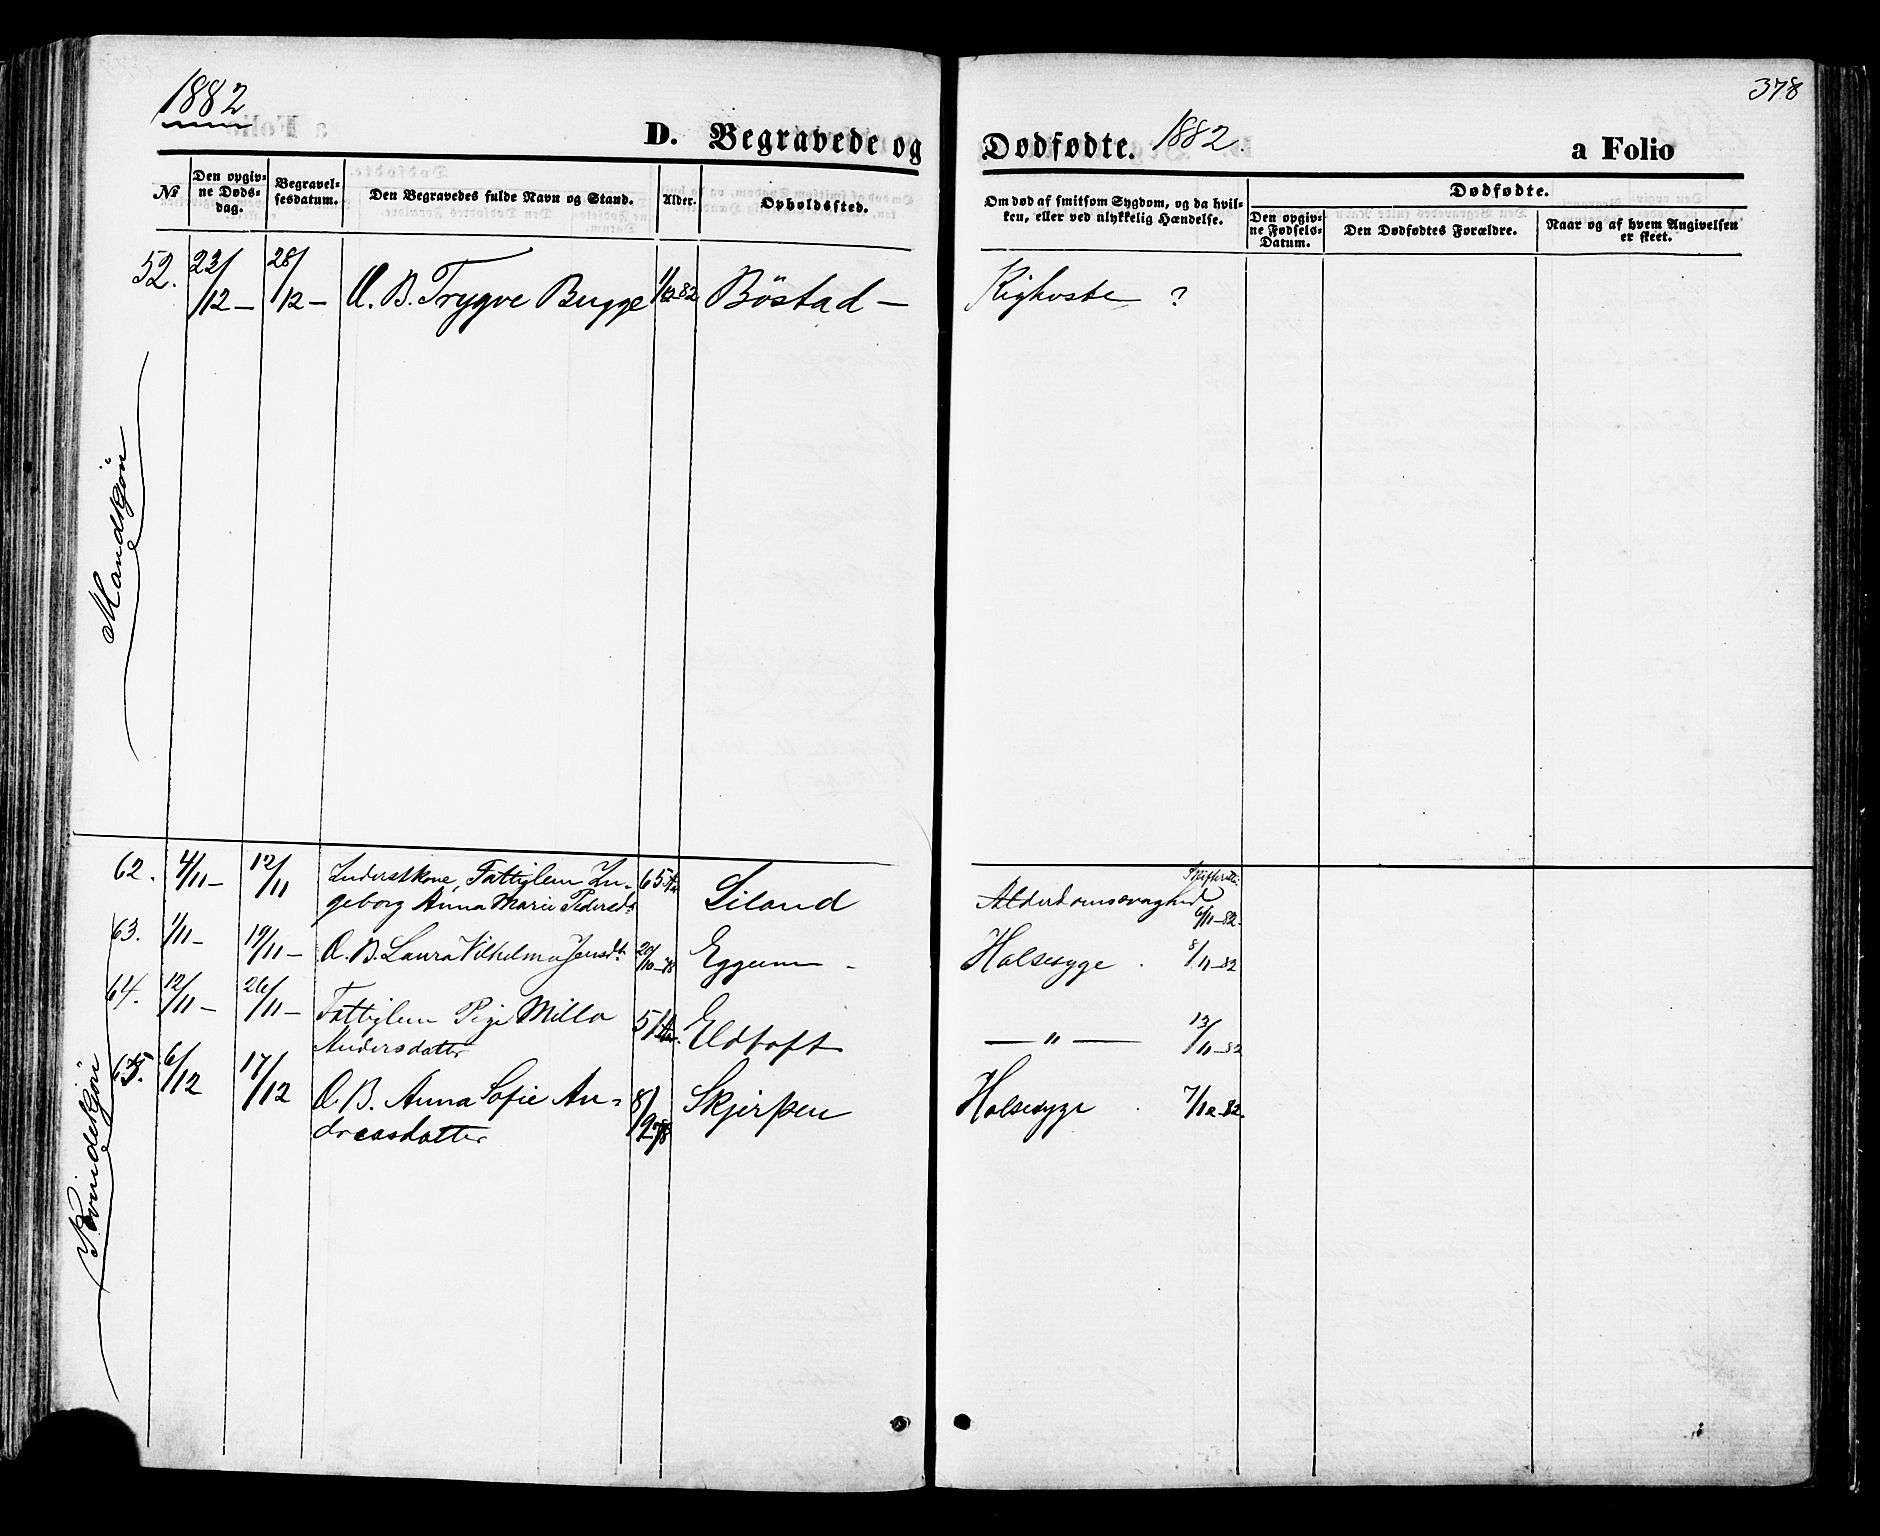 1882
378
D. Begravede og Dødfødte. 1882. a Folio
№ Den opgivne Dødsdag. Begravelsesdatum. Den Begravedes fulde Navn og Stand. Alder. Opholdssted. Om død af smitsom Sygdom, og da hvilken, eller ved ulykkelig Hændelse. Dødfødte.
Den opgivne Fødsels-Datum. Den Dødfødtes Forældre. Naar og af hvem Angivelsen er skeet.
52. 23/12 – 28/12 – U. B. Trygve Bugge 1/12 82 Böstad – Kighoste ?
Mandkjön
62. 4/11 – 12/11 Inderstkone, Fattiglem In-
geborg Anna Marie Pedersd. 65 Liland Alderdomssvaghed 6/11–82.
63. 1/11 – 19/11 – U. B. Laura Vilhelma Jensdt. 20/10–78 Eggum – Halssyge . 8/11–82
64. 12/11 – 26/11 – Fattiglem Pige Milla
Andersdatter 51 Eldtoft — " — 13/11–82
65. 6/12 17/12 U B. Anna Sofie An-
dreasdatter 8/9 78 Skjerpen Halssyge . 7/12–82.
Kvindekjön